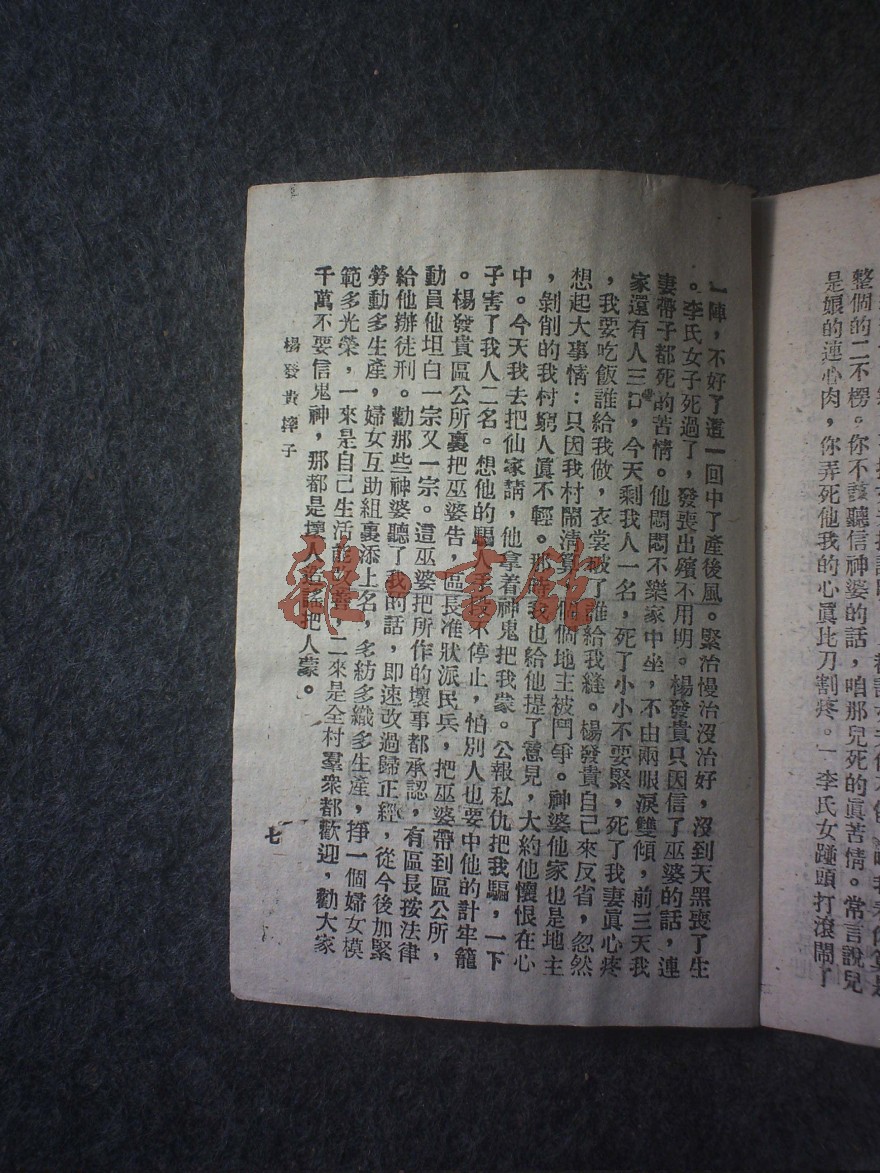 整個的二不楞。你不該聽信神婆的話,咱那兒死的眞苦情。常言說兒
是娘的連心肉,你弄死他我的心眞比刀割疼。一李氏女踫頭打滾鬧了
一陣,不好了這一回中了產後風。緊治慢治沒治好,沒到天黑喪了生
。李氏女子死過了,發喪出殯不用明。楊發貴只因信了巫婆的話,連
妻帶子都死的苦情。他悶悶不樂家中坐,不由兩眼淚雙傾,前三天我
家還有人三口,今天剩我人一名,死了小小不要緊,死了我妻眞心疼
,我要吃飯誰給我做,衣裳破了誰給我縫。楊發貴自己來反省,忽然
想起大事情:只因我村鬧清算,個個地主被鬥爭。神婆他家也是地主
,剝削的我村窮人眞不輕。那時我也給他提了意見,大約他懷恨在心
中。今天我去把仙家請,他拿着神鬼把我蒙。公報私仇把我騙,一下
子害了我人二名。想他的騙人手段不停止,怕別人也要中他的計牢籠
。楊發貴區公所裏把巫婆告,區長准狀派民兵,把巫婆帶到區公所,
動員他坦白一宗又一宗。這巫婆把所作的壞事都承認,有區長按法律
給他辦徒刑。勸那些神婆聽了我的話,即速改過歸正經,從今後加緊
勞動多生產,婦女互助組裏添上名,多紡多織多生產,掙一個婦女模
範多光榮,一來是自己生活能改善,二來是全村羣衆都歡迎,勸大家
千萬不要信鬼神,那都是壞人造謠把人蒙。
楊發貴摔子
七
雜·書館